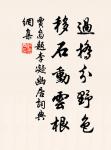 過橋分野色
移石動雲根
賈島題李凝幽居詞典
網集